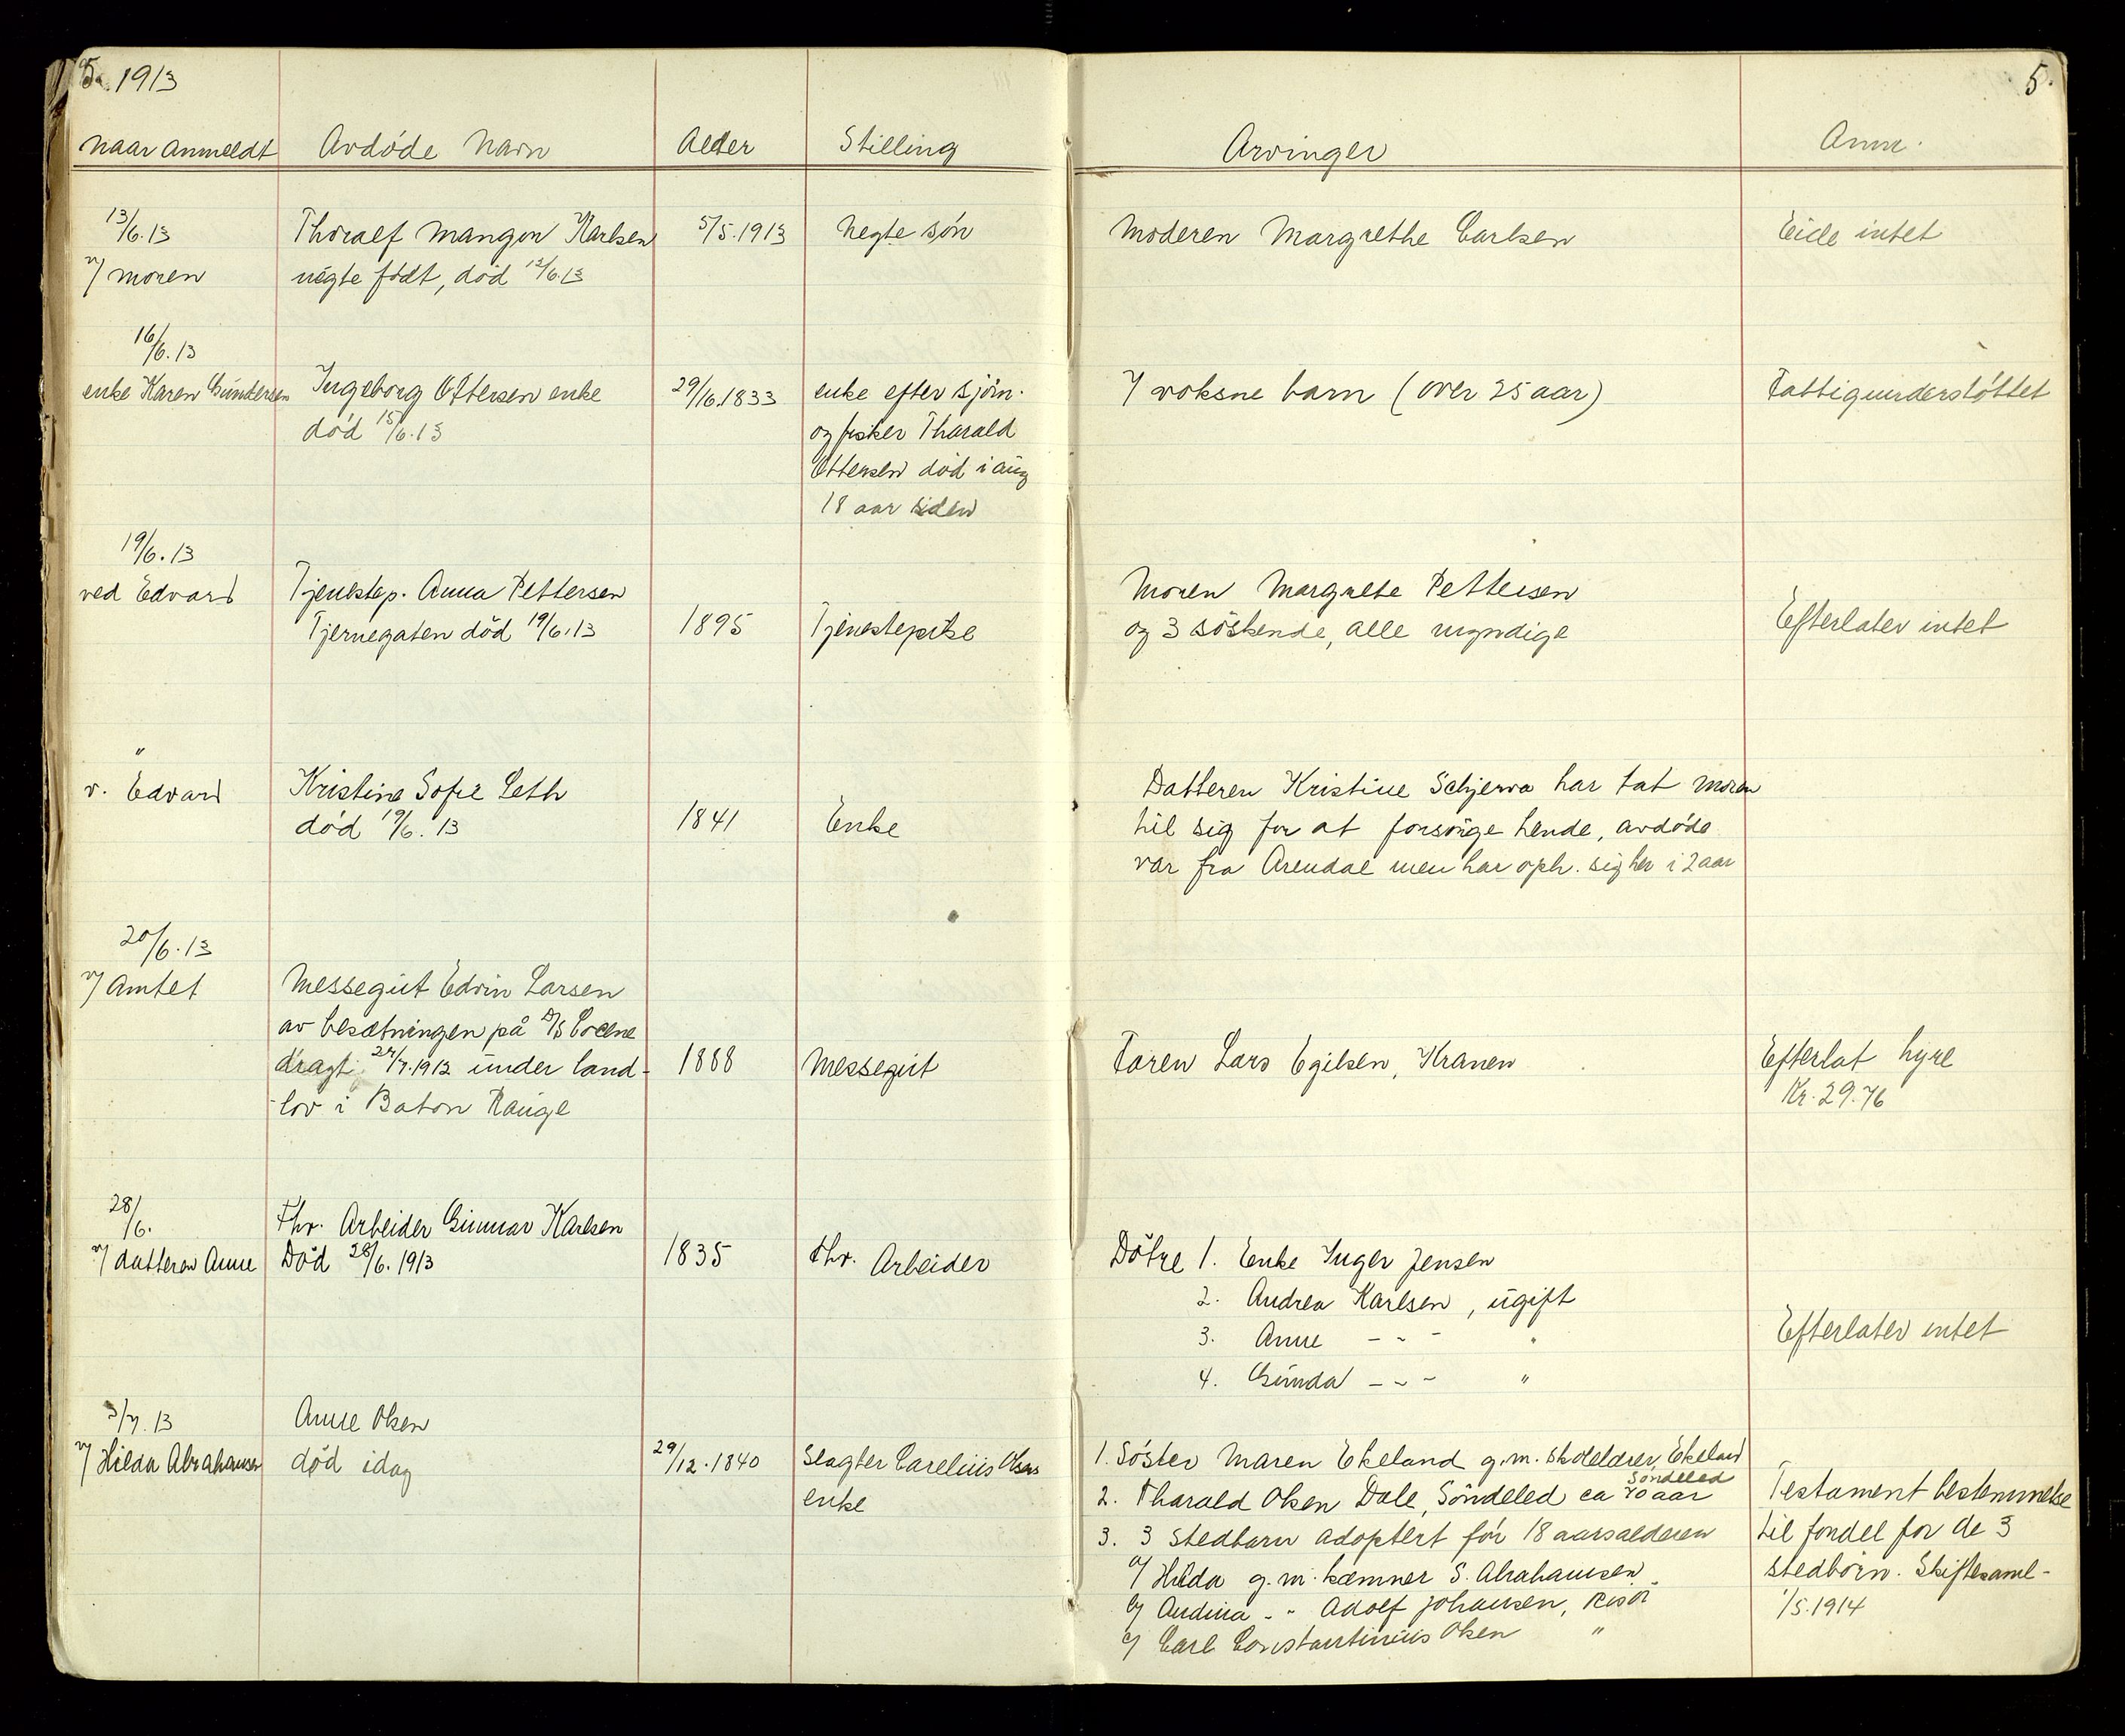 5. 1913
5.
Naar anmeldt
Avdöde Navn
Alder
Stilling
Arvinger
Anm.
13/6.13
v/ moren
Thoralf Mangon Karlsen
uegte födt, död 12/6.13
5/5.1913
Uegte sön
Moderen Margrethe Carlsen
Eide intet
16/6.13
enke Karen Gundersen
Ingeborg Ottersen enke
död 15/6.13
29/16.1833
enke efter sjöm.
og fisker Tharald
Ottersen död i aug
18 aar siden
7 voksne barn (over 25 aar)
Fattigunderstöttet
19/6.13
ved Edvard
Tjenestep. Anna Pettersen
Tjernegaten död 19/6.13
1895
Tjenestepike
Moren Margrete Pettersen
og 3 söskende, alle myndige
Efterlater intet
"
v. Edvard
Kristine Sofie Leth
död 19/6.13
1841
Enke
Datteren Kristine Schjerva har tat moren
til sig for at forsörge hende, avdöde
var fra Arendal men har oph. sig her i 2 aar
20/6.13
v/ Amtet
Messegut Edvin Larsen
av besætningen på D/S Cocene
dragt 24/7.1912 under land-
lov i Baton Rauge
1888
Messegut
Faren Lars Egilsen, Kranen
Efterlat hyre
Kr. 29.76
28/6.
v/ datteren Anne
Fhv. Arbeider Gunnar Karlsen
Död 28/6.1913
1835
fhv. Arbeider
Dötre 1. Enke Inger Jensen
2. Andrea Karlsen, ugift
3. Anne - - - "
4. Gunda - - - "
Efterlater intet
3/7.13
v/ Hilda Abrahamsen
Anne Olsen
död idag
29/12.1840
Slagter Carelius Olsens
enke
1. Söster Maren Ekeland g.m. skolelærer Ekeland
Söndeled
2. Tharald Olsen Dale, Söndeled ca 70 aar
3. 3 stedbarn adoptert för 18 aarsalderen
a/ Hilda g.m. kæmner S. Abrahamsen
b/ Andina - " Adolf Johansen, Risör
c/ Carl Constantinius Olsen "
Testament bestemmelse
til fordel for de 3
stedbörn. Skiftesaml-
1/5.1914